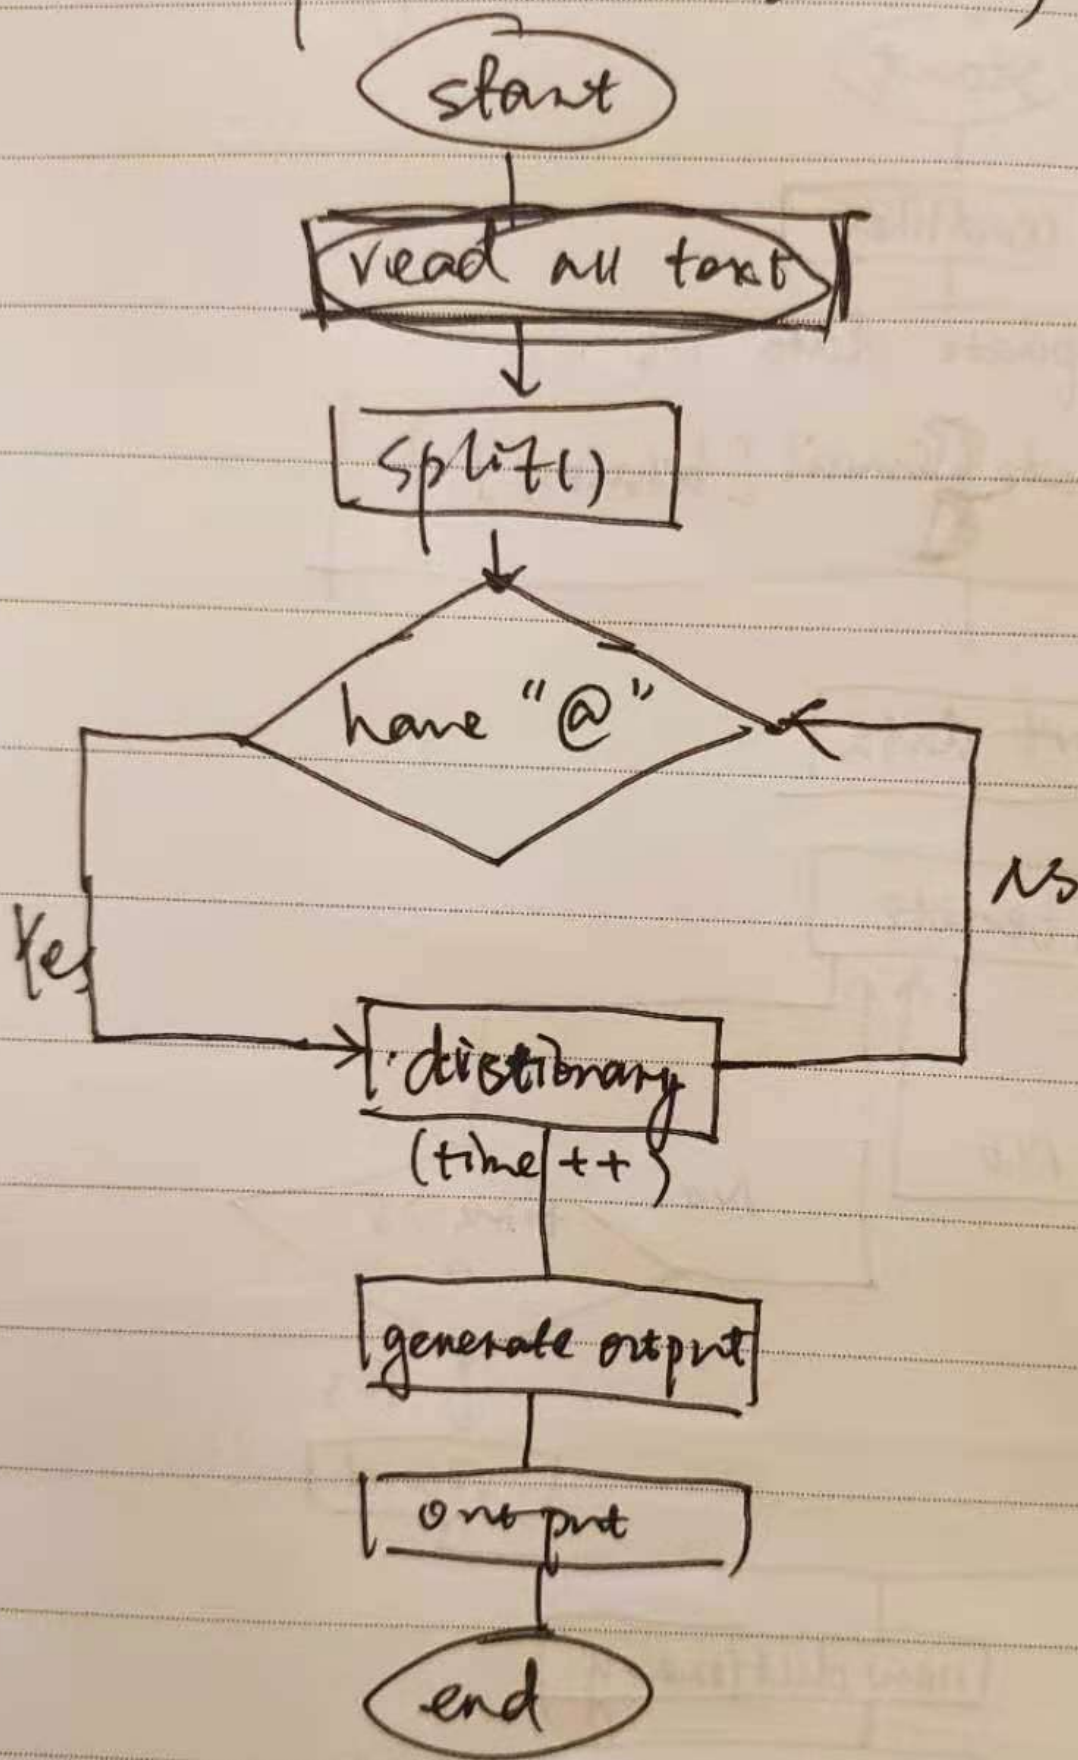 start
read all text
split()
have "@"
No
Yes
dictionary
(time++)
generate output
output
end